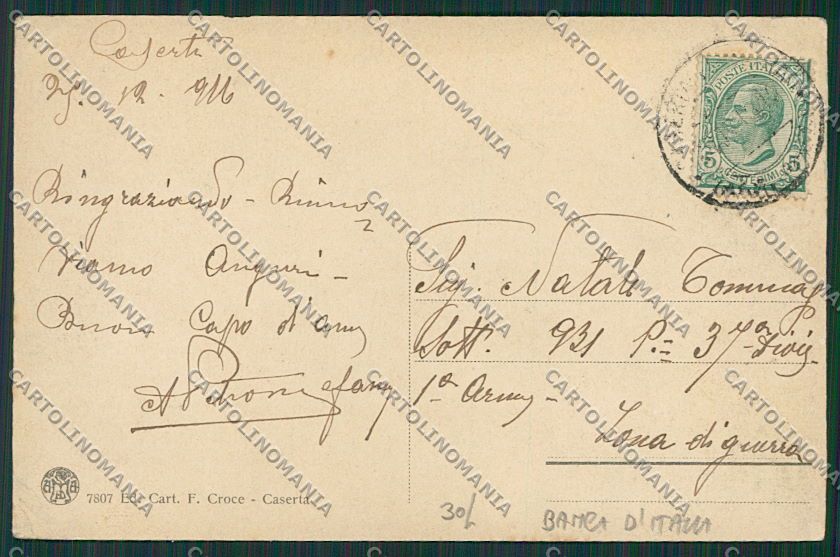 Caserta
25. 12. 916
Ringraziando - Rinno
viamo Auguri -
Buon Capo d'anno
Sig. Natali Tommaso
Sott. 931 37a Divis.
1a Armata -
Zona di guerra
POSTE ITALIANE
5 CENTESIMI 5
7807 Ed. Cart. F. Croce - Caserta
30/
BANCA D'ITALIA
CARTOLINOMANIA